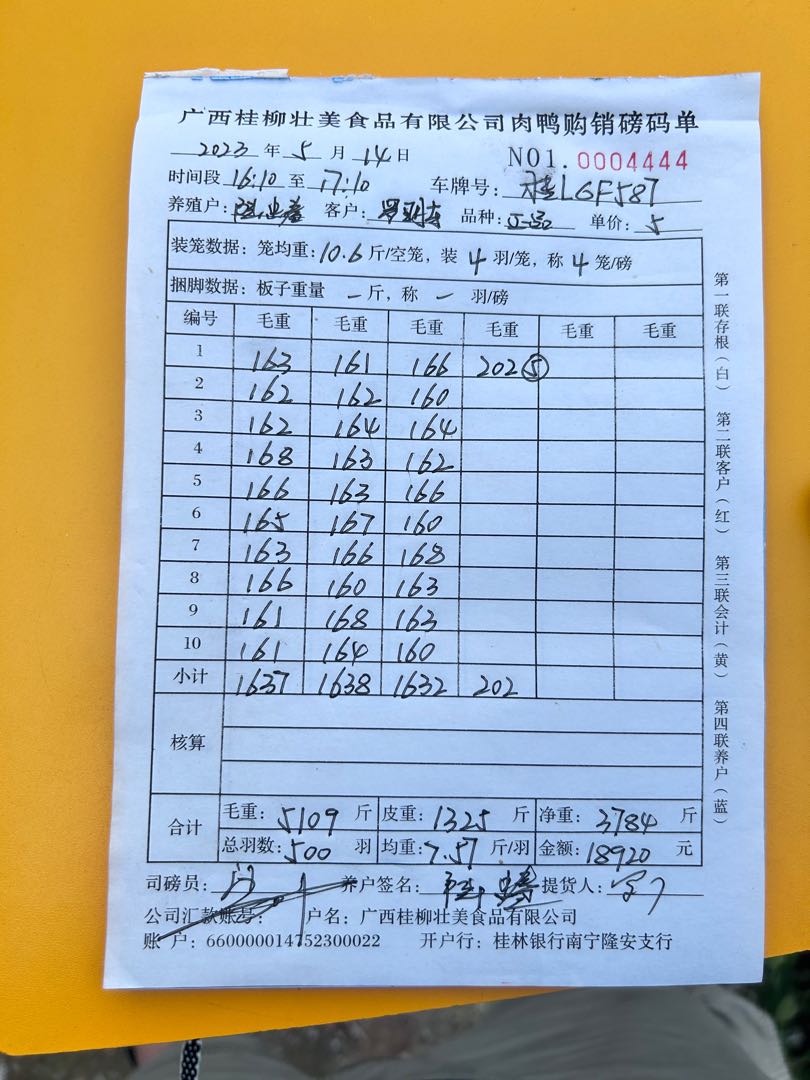 广西桂柳壮美食品有限公司肉鸭购销磅码单
2023 年 5 月 14 日 NO1. 0004444
时间段 16:10 至 17:10 车牌号: 桂LGF587
养殖户: 客户: 品种: 正品 单价: 5
装笼数据: 笼均重: 10.6 斤/空笼, 装 4 羽/笼, 称 4 笼/磅
捆脚数据: 板子重量 一 斤, 称 一 羽/磅
编号 毛重 毛重 毛重 毛重 毛重 毛重
1 163 161 166 202 ⑤
2 162 162 160
3 162 164 164
4 168 163 162
5 166 163 166
6 165 167 160
7 163 166 168
8 166 160 163
9 161 168 163
10 161 164 160
小计 1637 1638 1632 202
核算
合计 毛重: 5109 斤 皮重: 1325 斤 净重: 3784 斤
总羽数: 500 羽 均重: 7.57 斤/羽 金额: 18920 元
司磅员: 养户签名: 提货人:
公司汇款账号: 户名: 广西桂柳壮美食品有限公司
账 户: 660000014752300022 开户行: 桂林银行南宁隆安支行
第一联存根(白) 第二联客户(红) 第三联会计(黄) 第四联养户(蓝)